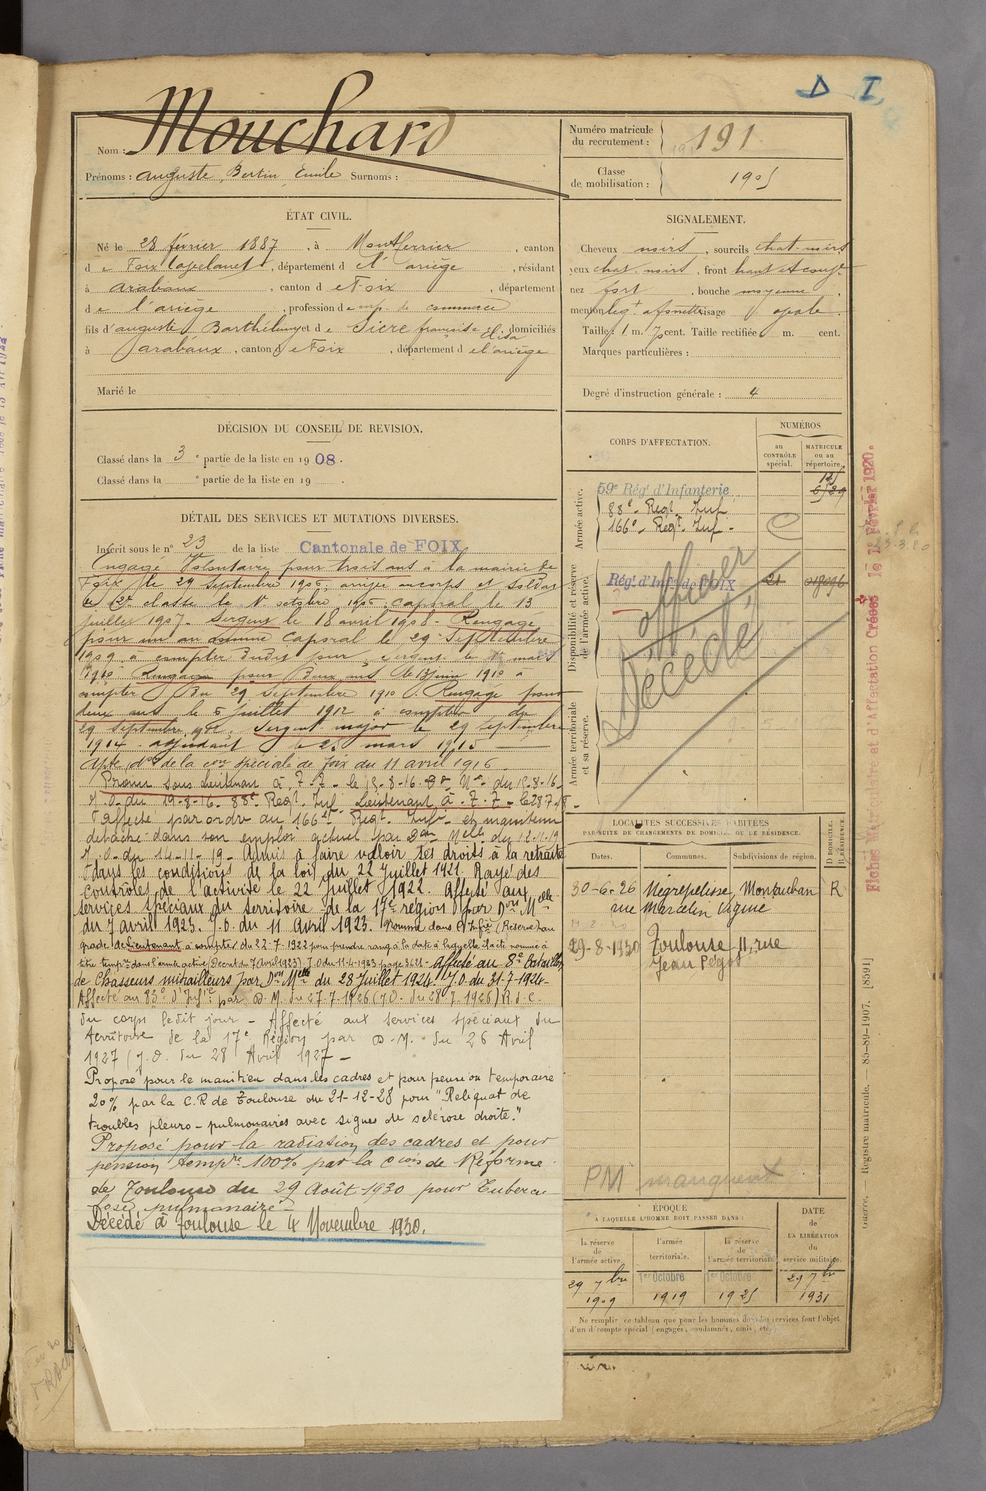 D I
Nom : Mouchard
Prénoms : Auguste, Bertin, Emile Surnoms :
Numéro matricule du recrutement : 191
Classe de mobilisation : 1905
ÉTAT CIVIL.
Né le 28 février 1887, à Montferrier, canton
de Foix Lapelanet, département de l'ariège, résidant
à arabaux, canton de Foix, département
de l'ariège, profession d emp. de commerce
fils d'auguste Barthélemy et de Sicre françoise Elisa domiciliés
à arabaux, canton de Foix, département de l'ariège
Marié le
SIGNALEMENT.
Cheveux noirs, sourcils chat. noirs
yeux chat. noirs, front haut et
nez fort, bouche moyenne,
menton visage ovale.
Taille : 1 m. 70 cent. Taille rectifiée m. cent.
Marques particulières :
Degré d'instruction générale : 4
DÉCISION DU CONSEIL DE REVISION.
Classé dans la 3e partie de la liste en 1908.
Classé dans la e partie de la liste en 19 .
DÉTAIL DES SERVICES ET MUTATIONS DIVERSES.
Inscrit sous le n° 23 de la liste Cantonale de FOIX
Engagé Volontaire pour trois ans à la mairie de
Foix le 29 septembre 1906, arrivé au corps et soldat
de 2e classe le 1er octobre 1906. caporal le 13
juillet 1907. Sergent le 18 avril 1908. Rengagé
pour un an comme Caporal le 29 Septembre
1909 à compter dudit jour, sergent le 1er mars
1910 Rengagé pour Deux ans le 13 juin 1910 à
compter du 29 septembre 1910. Rengagé pour
deux ans le 5 juillet 1912 à compter du
29 septembre 1912. Sergent major le 29 septembre
1914. adjudant le 25 mars 1915
Apte don de la con spéciale de Foix du 11 avril 1916.
Promu sous lieutenant à T.T. le 15-8-16 Don Mle du 15-8-16
J.O. du 19-8-16. 88e Regt Inf. Lieutenant à T.T. le 28-7-18
Affecté par ordre au 166e Regt Infie et maintenu
détaché dans son emploi actuel par Don Melle du 12-11-19
J.O. du 14-11-19. Admis à faire valoir ses droits à la retraite
dans les conditions de la loi du 22 juillet 1921. Rayé des
contrôles de l'activité le 22 Juillet 1922. Affecté aux
services spéciaux du territoire de la 17e région par Don Melle
du 7 avril 1923. J.O. du 11 Avril 1923. Nommé dans l'Infie (Réserve) au
grade de Lieutenant à compter du 22-7-1922 pour prendre rang à la date à laquelle il a été nommé à
titre tempre dans l'armée active (Décret du 7 Avril 1923) J.O. du 11-4-1923 page 3621 - Affecté au 8e Bataillon
de Chasseurs mitrailleurs par Don Melle du 28 Juillet 1924. J.O. du 31-7-1924
Affecté au 83e d'Infie par D.M. du 27-7-1926 (J.O. du 28-7-1926) R.d.C.
du corps ledit jour - Affecté aux services spéciaux du
territoire de la 17e Région par D.M. du 26 Avril
1927 (J.O. du 28 Avril 1927 -
Proposé pour le maintien dans les cadres et pour pension temporaire
20% par la C.R de Toulouse du 21-12-28 pour "Reliquat de
troubles pleuro-pulmonaires avec signes de sclérose droite."
Proposé pour la radiation des cadres et pour
pension tempre 100% par la Cion de Réforme
de Toulouse du 29 Août 1930 pour Tubercu
lose pulmonaire
Décédé à Toulouse le 4 Novembre 1930.
CORPS D'AFFECTATION.
NUMÉROS
au CONTRÔLE spécial.
MATRICULE ou au répertoire.
Armée active.
59e Régt d'Infanterie
88e Regt Inf
166e Regt Inf
Disponibilité et réserve de l'armée active.
Régt d'Infie de FOIX 21
officier
Décédé
Armée territoriale et sa réserve.
LOCALITÉS SUCCESSIVES HABITÉES
PAR SUITE DE CHANGEMENTS DE DOMICILE OU DE RÉSIDENCE.
Dates. Communes. Subdivisions de région. D DOMICILE. R RÉSIDENCE.
30-6-26 Négrepelisse, Montauban R
rue Marcelin Vigne
29-8-1930 Toulouse 11, rue
Jean Pégot
PM manquent
ÉPOQUE
À LAQUELLE L'HOMME DOIT PASSER DANS :
la réserve de l'armée active.
l'armée territoriale.
la réserve de l'armée territoriale.
DATE de LA LIBÉRATION du service militaire.
29 7bre 1909
1er Octobre 1919
1er Octobre 1925
29 7bre 1931
Ne remplir ce tableau que pour les hommes dont les services font l'objet
d'un décompte spécial (engagés, condamnés, omis, etc.
Fiches Matriculaire et d'Affectation Créées le 1er Février 1920.
Guerre. — Registre matricule. — 85-89-1907. [8591]